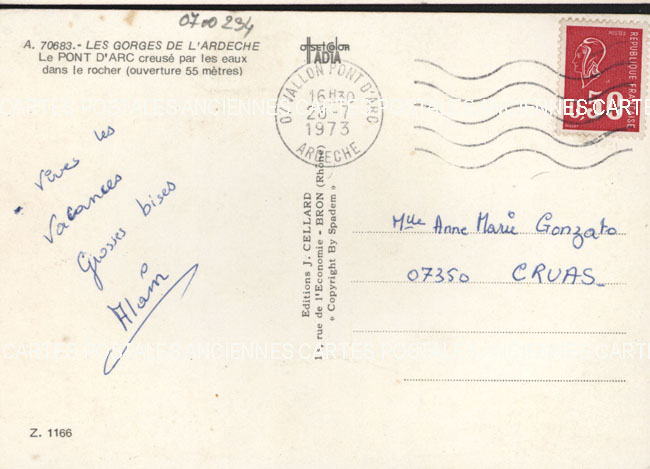 0700 294
A. 70683.- LES GORGES DE L'ARDECHE
Le PONT D'ARC creusé par les eaux
dans le rocher (ouverture 55 mètres)
OFFSET COLOR
IADIA
07 VALLON PONT D'ARC
16H30
20-7
1973
ARDECHE
REPUBLIQUE FRANCAISE
0,50
CARTES POSTALES ANCIENNES CARTES
Vives les
Vacances
Grosses bises
Alain
Mlle Anne Marie Gonzato
07350 CRUAS
Editions J. CELLARD
rue de l'Economie - BRON (Rhône)
« Copyright By Spadem »
CARTES POSTALES ANCIENNES CARTES POSTALES
Z. 1166